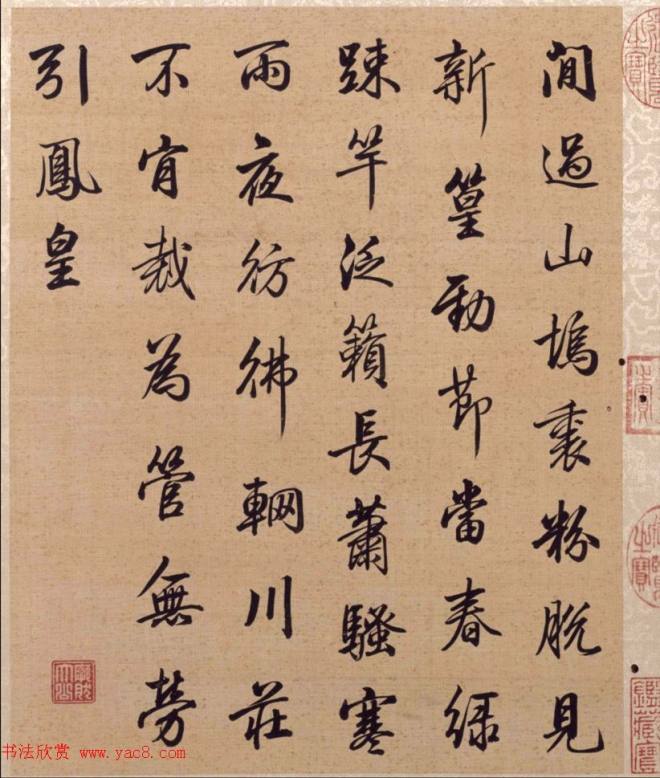 間過山塢裏粉脫見
新篁勁節當春綠
踈竿泛籟長蕭騷寒
雨夜彷彿輞川莊
不宜裁為管無勞
引鳳皇
之寶
書法欣赏 www.yac8.com